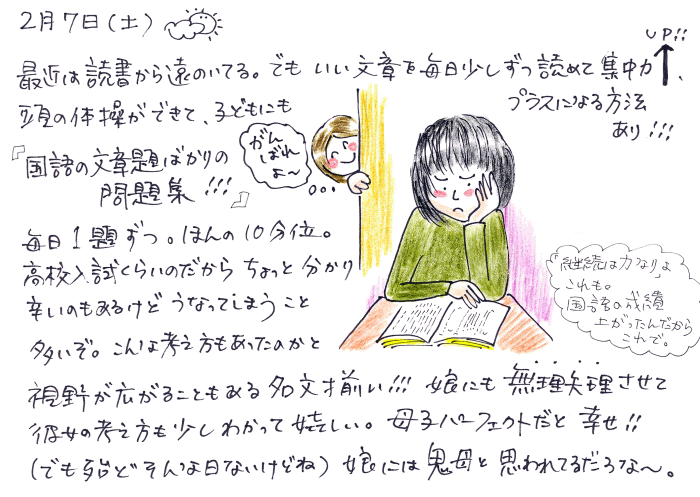 2月7日(土)
UP!!
最近は読書から遠のいてる。でも いい文章を毎日少しずつ読めて集中力、
頭の体操ができて、子どもにも
プラスになる方法
あり!!!
がん
ばれ
よ〜
『国語の文章題ばかりの
問題集!!!』
毎日1題ずつ。ほんの10分位。
高校入試くらいのだから ちょっと分かり
辛いのもあるけど うなってしまうこと
多いぞ。こんな考え方もあったのかと
「継続は力なり」よ
これも。
国語の成績
上がったんだから
これで。
視野が広がることもある名文揃い!!! 娘にも無理矢理させて
彼女の考え方も少しわかって嬉しい。母子パーフェクトだと幸せ!!
(でも殆どそんな日ないけどね) 娘には鬼母と思われてるだろな〜。